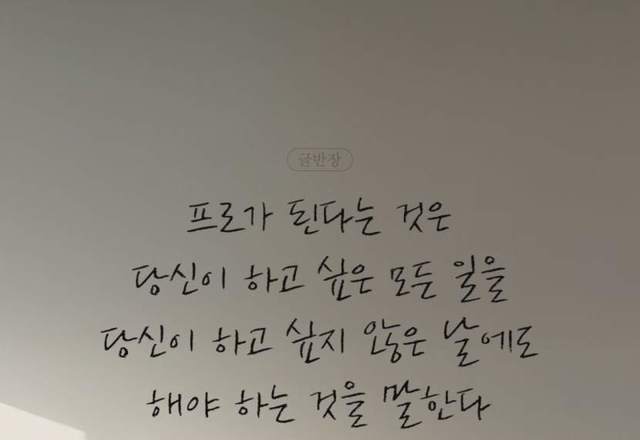 글반장
프로가 된다는 것은
당신이 하고 싶은 모든 일을
당신이 하고 싶지 않은 날에도
해야 하는 것을 말한다